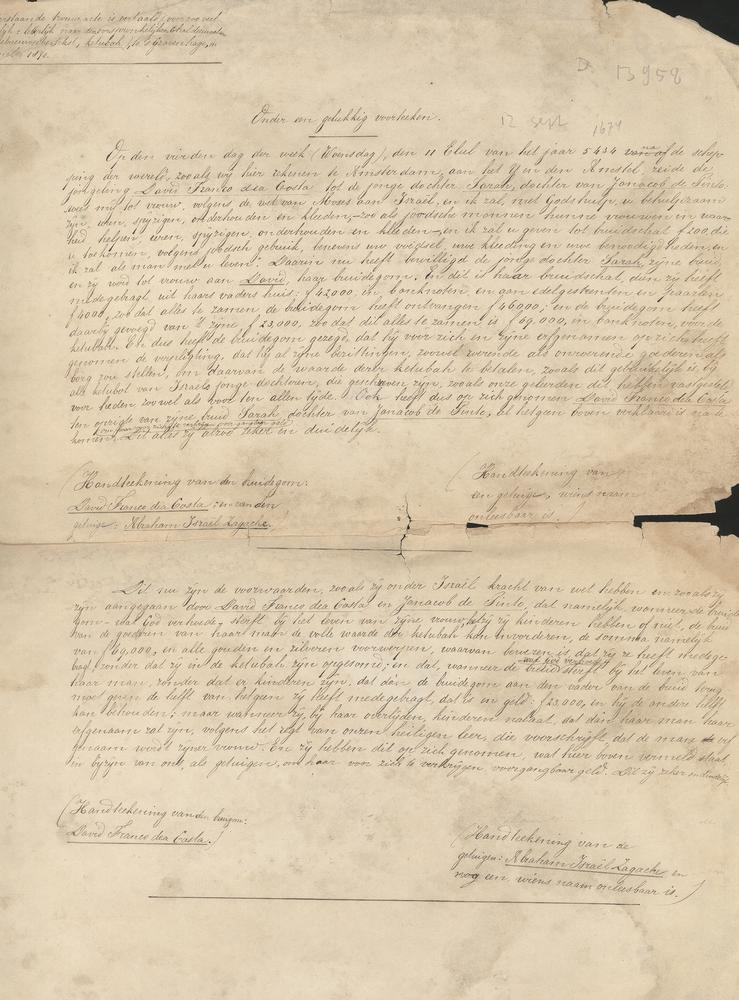 trouw acte is vertaald, voor zoo veel
letterlijk naar den oorspronkelijken
tekst, ketubah, te 's Gravenhage, in
1890.
D. 13958
Onder een gelukkig voorteeken.
12 sept 1674
Op den vierden dag der week (Woensdag), den 11 Elul van het jaar 5434 na de schep-
ping der wereld, zooals wij hier rekenen te Amsterdam, aan het Y en den Amstel, zeide de
jongeling David Franco dea Costa tot de jonge dochter Sarah, dochter van Janacob de Pinto:
wees mij tot vrouw, volgens de wet van Mozes aan Israël, en ik zal, met Gods hulp, u behulpzaam
zijn, eeren, spyzigen, onderhouden en kleeden, zoo als joodsche mannen hunne vrouwen in waar-
heid helpen, eeren, spyzigen, onderhouden en kleeden, en ik zal u geven tot bruidschat f 200, die
u toekomen, volgens joodsch gebruik, benevens uw voedsel, uwe kleeding en uwe benoodigdheden, en
ik zal als man met u leven. Daarin nu heeft bewilligd de jonge dochter Sarah, zijne bruid,
en zij werd tot vrouw aan David, haar bruidegom. En dit is haar bruidschat, dien zij heeft
medegebragt uit haars vaders huis: f 42000, in banknoten, en aan edelgesteenten en paarlen
f 4000, zoodat alles te zamen de bruidegom heeft ontvangen f 46000; en de bruidegom heeft
daarbij gevoegd van 't zijne f 23,000, zoo dat dit alles te zamen is f 69,000, in banknoten, voor de
ketubah. En dus heeft de bruidegom gezegd, dat hij voor zich en zijne erfgenamen op zich heeft
genomen de verpligting, dat hij al zijne bezittingen, zoowel roerende als onroerende goederen, als
borg zou stellen, om daarvan de waarde dezer ketubah te betalen, zooals dit gebruikelijk is bij
alle ketubot van Israels jonge dochteren, die geschreven zijn, zooals onze geleerden die hebben vastgesteld
voor heden, zoowel als voor ten allen tijde. Ook heeft dus op zich genomen David Franco dea Costa
ten opzigte van zijne bruid Sarah, dochter van Janacob de Pinto, al hetgeen boven verklaard is na te
komen. Dit alles zij alzoo zeker en duidelijk.
(Handteekening van den bruidegom:
David Franco dea Costa; en van den
getuige: Abraham Israël Zagache.
(Handteekening van
een getuige, wiens naam
onleesbaar is.)
Dit nu zijn de voorwaarden, zooals zij onder Israël kracht van wet hebben en zooals zij
zijn aangegaan door David Franco dea Costa en Janacob de Pinto, dat namelijk, wanneer de bruide-
gom – wat God verhoede – sterft bij het leven van zijne vrouw, hetzij zij kinderen hebben of niet, de bruid
van de goederen van haar man de volle waarde der ketubah kan invorderen, de somma namelijk
van f 69,000, en alle gouden en zilveren voorwerpen, waarvan bewezen is dat zij ze heeft medege-
bragt, zonder dat zij in de ketubah zijn opgesomd; en dat, wanneer de bruid sterft bij het leven van
haar man, zonder dat er kinderen zijn, dat dan de bruidegom aan den vader van de bruid terug
moet geven de helft van hetgeen zij heeft medegebragt, dat is en geld: f 23,000, en hij de andere helft
kan behouden; maar wanneer zij, bij haar overlijden, kinderen nalaat, dat dan haar man haar
erfgenaam zal zijn, volgens het regt van onzen heiligen leer, die voorschrijft, dat de man de erf-
genaam wordt zijner vrouw. En zij hebben dit op zich genomen, wat hier boven vermeld staat,
in bijzijn van ons, als getuigen, om haar voor zich te verkrijgen, voor gangbaar geld. Dit zij zeker en duidelijk.
(Handteekening van den bruigom:
David Franco dea Costa.)
(Handteekening van de
getuigen: Abraham Israël Zagache en
nog een, wiens naam onleesbaar is.)